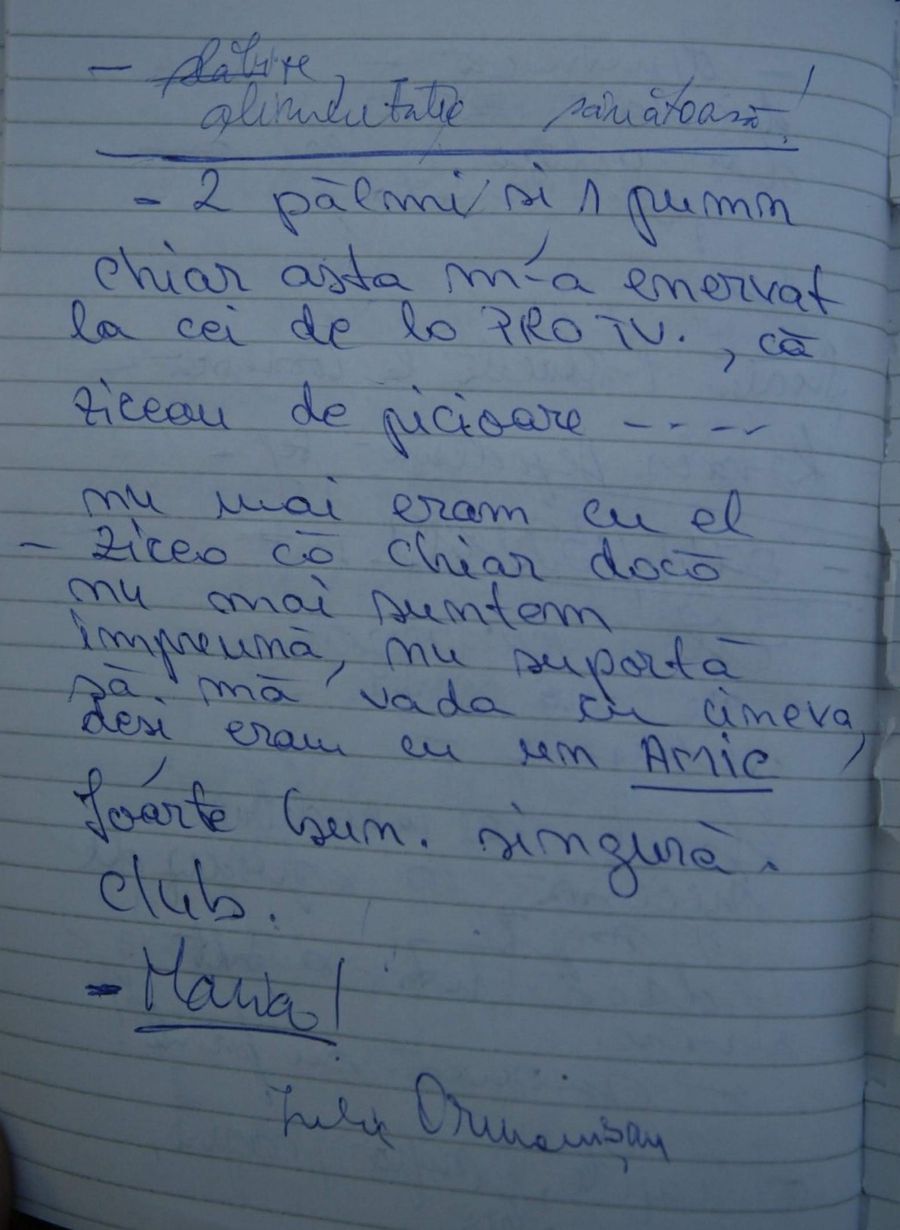 - slăbire,
alimentație sănătoasă!
- 2 pălmi și 1 pumn
chiar asta m-a enervat
la cei de la PRO TV. , că
ziceau de picioare -----
nu mai eram cu el
- zicea că chiar dacă
nu mai suntem
împreună, nu suportă
să mă vada cu cineva,
desi eram cu un AMIC
foarte bun. singură.
club.
- Maria!